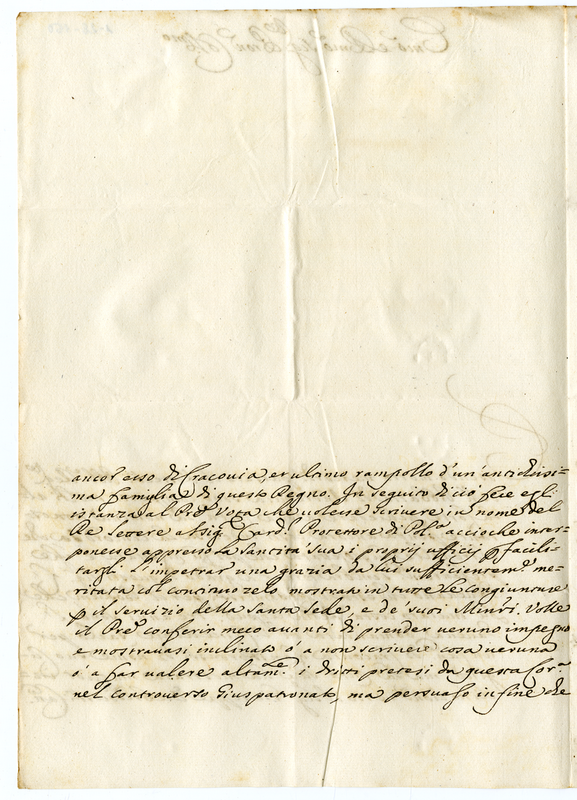 ancor esso di Cracovia, et ultimo rampollo d'un'antichissi-
ma famiglia di questo Regno. In seguito di ciò fece egli
istanza al Pre Vota che volesse scrivere in nome del
Re lettere al Sig.r Card.l Protettore di Pol.a accioche inter-
ponesse appresso la Santità Sua i proprij ufficij p facili-
targli l'impetrar una grazia da lui sufficientem.e me-
ritata col continuo zelo mostrato in tutte le congiunture
p il servizio della Santa Sede, e de' suoi Minri. Volle
il Pre conferir meco avanti di prender veruno impegno
e mostravasi inclinato ò a non scrivere cosa veruna
ò a far valere altam.te i dritti pretesi da questa Cor.a
nel controverso Giuspatronato, ma persuaso in fine che